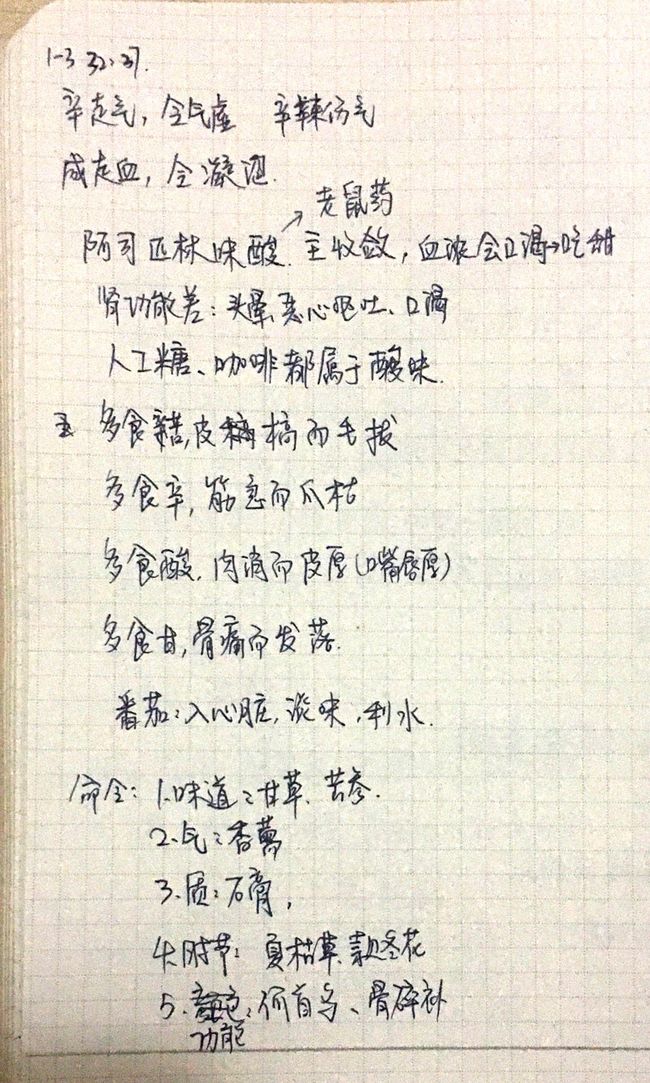 1-3 32:37.
辛走气，令气虚　辛辣伤气
咸走血，令凝涩.
老鼠药
阿司匹林味酸.主收敛，血浓会口渴→吃甜
肾功能差：头晕,恶心呕吐、口渴
人工糖、咖啡都属于酸味.
多食苦,皮槁而毛拔
多食辛,筋急而爪枯
多食酸,肉消而皮厚(口嘴唇厚)
多食甘,骨痛而发落.
番茄：入心脏,涩味,利水.
命令：1.味道：甘草、苦参.
2.气：香薷
3.质：石膏,
4.时节：夏枯草、款冬花
5.：何首乌、骨碎补
功能